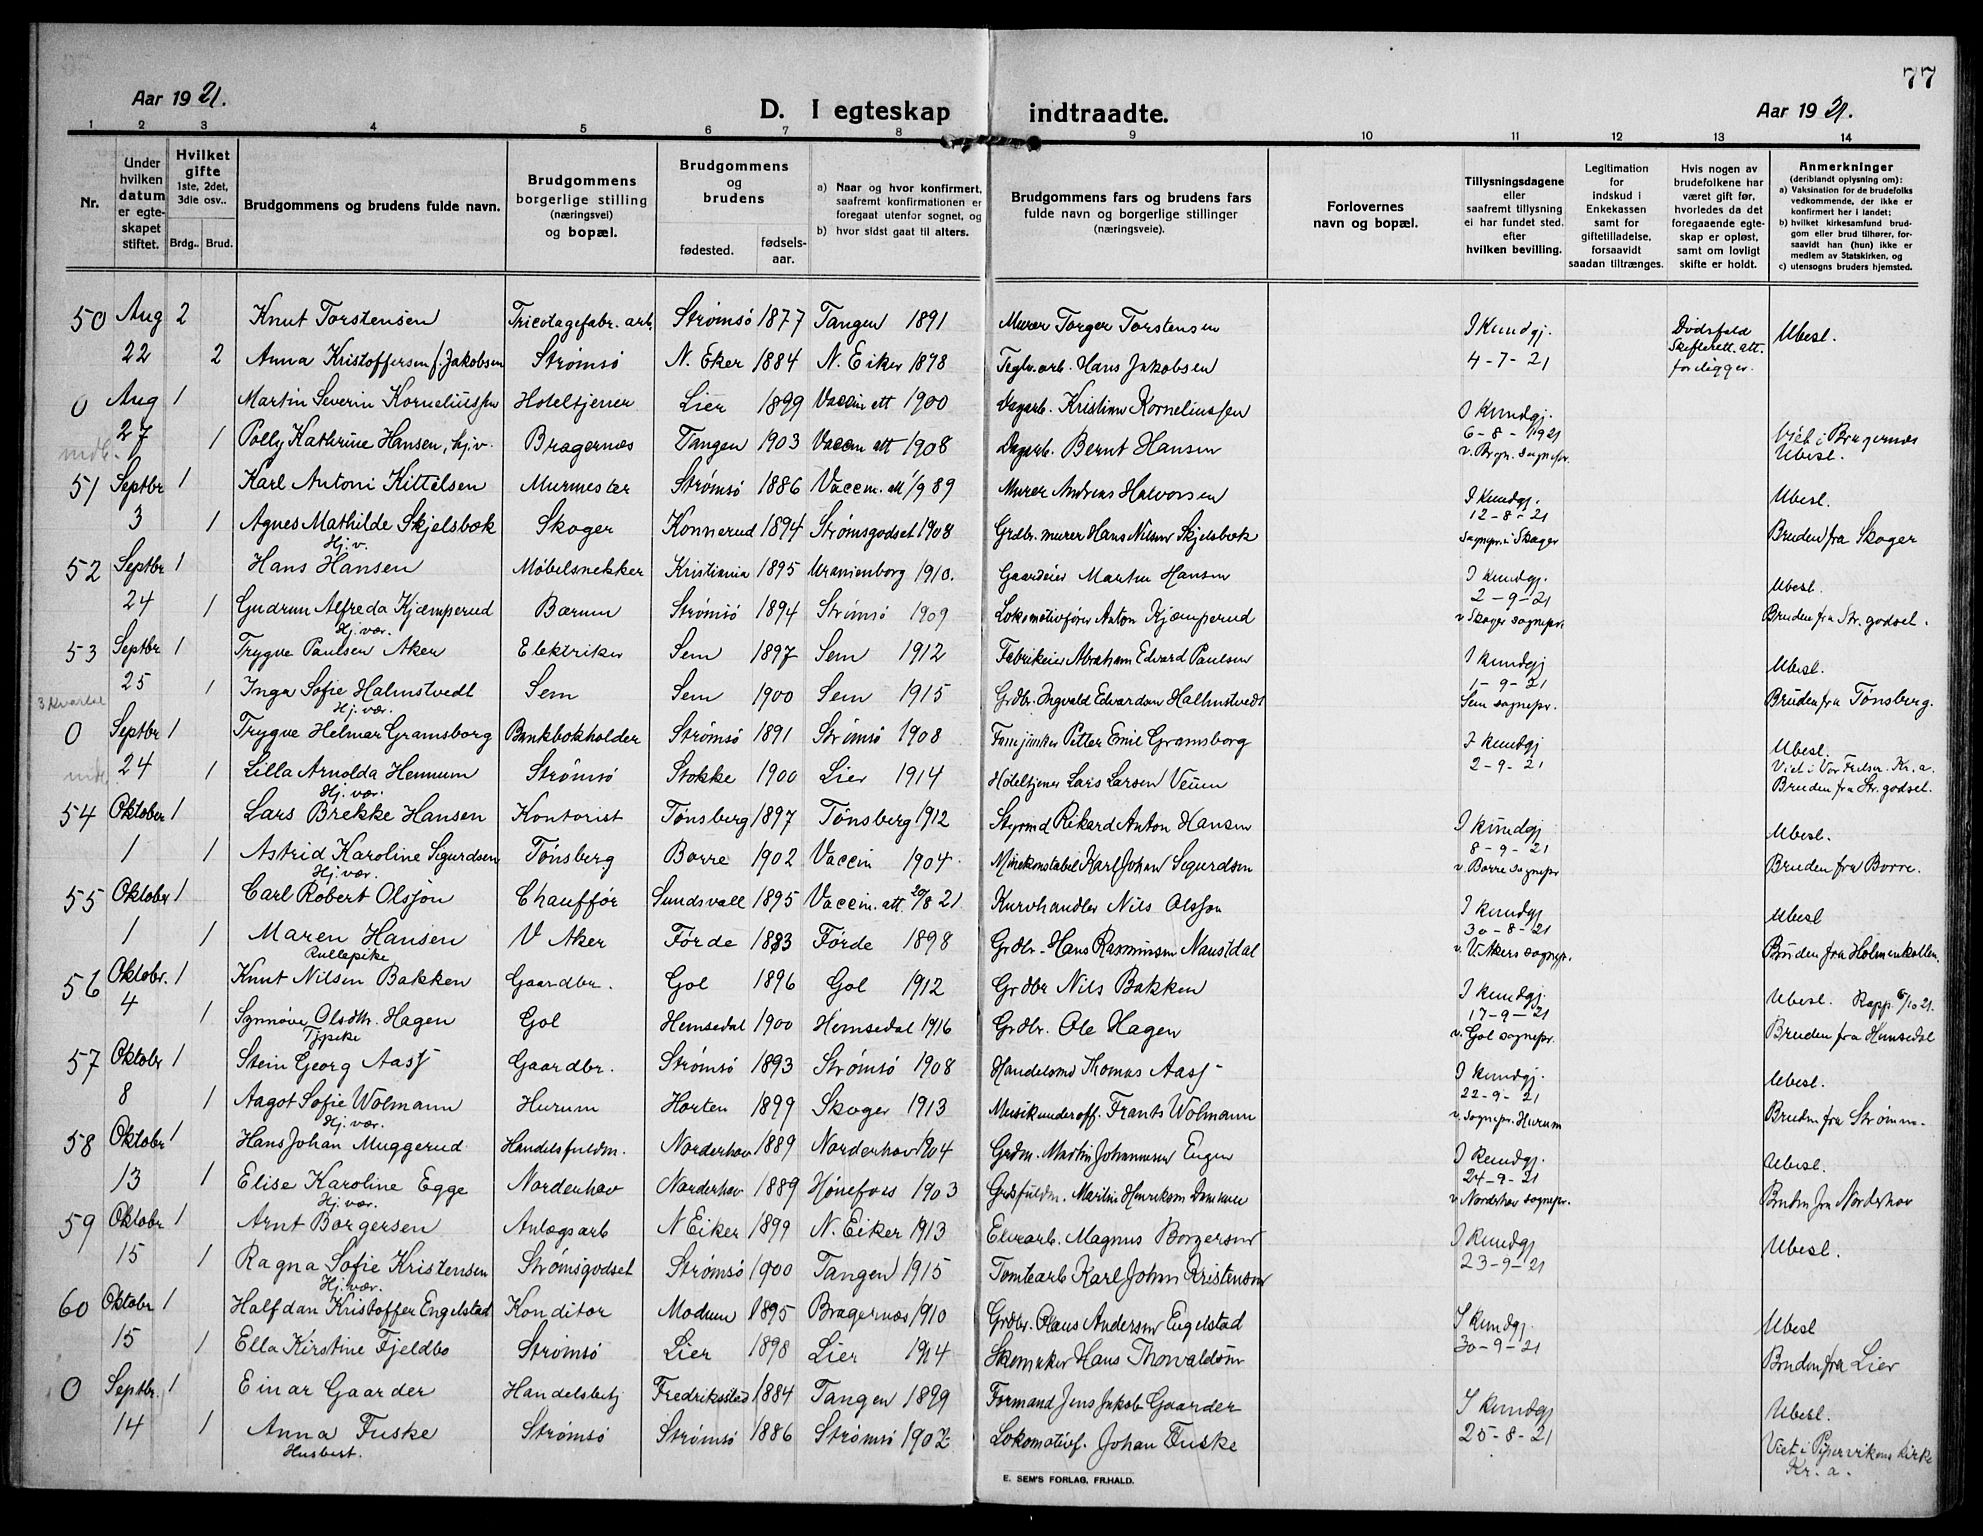 77
Aar 1921.
D. I egteskap indtraadte.
Aar 1921.
1 2 3 4 5 6 7 8 9 10 11 12 13 14
Nr.
Under hvilken datum er egteskapet stiftet.
Hvilket gifte 1ste, 2det, 3die osv..
Brdg.. Brud.
Brudgommens og brudens fulde navn.
Brudgommens borgerlige stilling (næringsvei) og bopæl.
Brudgommens og brudens
fødested. fødsels-aar.
a) Naar og hvor konfirmert, saafremt konfirmationen er foregaat utenfor sognet, og
b) hvor sidst gaat til alters.
Brudgommens fars og brudens fars fulde navn og borgerlige stillinger (næringsveie).
Forlovernes navn og bopæl.
Tillysningsdagene eller saafremt tillysning ei har fundet sted. efter hvilken bevilling.
Legitimation for indskud i Enkekassen samt for giftetilladelse, forsaavidt saadan tiltrænges.
Hvis nogen av brudefolkene har været gift før, hvorledes da det foregaaende egteskap er opløst, samt om lovligt skifte er holdt.
Anmerkninger (deriblandt oplysning om): a) Vaksination for de brudefolks vedkommende, der ikke er konfirmert her i landet; b) hvilket kirkesamfund brudgom eller brud tilhører, forsaavidt han (hun) ikke er medlem av Statskirken, og c) utensogns bruders hjemsted.
50 Aug 2 Knut Torstensen Tricotagefabr. arb. Strømsø 1877 Tangen 1891 Murer Torger Torstensen I Kundgj. Dødsfald Ubesl.
22 2 Anna Kristoffersen f. Jakobsen Strømsø N. Eker 1884 N. Eiker 1898 Teglv. arb. Hans Jakobsen 4-7-21 Skifterett. att. foreligger.
0 Aug 1 Martin Severin Korneliussen Hoteltjener Lier 1899 Vaccin att 1900 Dagarb. Kristian Korneliussen I Kundgj.
27 1 Polly Kathrine Hansen, hj.v. Bragernes Tangen 1903 Vaccin att 1908 Dagarb. Bernt Hansen 6-8-1921 v. Brgn. sognepr. Viet i Bragernes Ubesl.
51 Septbr 1 Karl Antoni Kittelsen Murmester Strømsø 1886 Vaccin. att 1/9 89 Murer Andreas Halvorsen I Kundgj. Ubesl.
3 1 Agnes Mathilde Skjelsbæk Skoger Konnerud 1894 Strømsgodset 1908 Grdbr. murer Hans Nilsen Skjelsbæk 12-8-21 Sognepr. i Skoger Bruden fra Skoger
Hj.v.
52 Septbr 1 Hans Hansen Møbelsnekker Kristiania 1895 Uranienborg 1910. Gaardeier Martin Hansen I Kundgj. Ubesl.
24 1 Gudrun Alfreda Kjæmperud Bærum Strømsø 1894 Strømsø 1909 Lokomotivfører Anton Kjæmperud 2-9-21 v Skoger sognepr. Bruden fra Str. godset.
Hj. vær.
53 Septbr 1 Trygve Paulsen Aker Elektriker Sem 1897 Sem 1912 Fabrikeier Abraham Edvard Paulsen I Kundgj Ubesl.
25 1 Inga Sofie Halmstvedt Sem Sem 1900 Sem 1915 Grdbr. Ingvald Edvardsen Halmstvedt 1-9-21 Sem sognepr. Bruden fra Tønsberg.
3 kvartal Hj. vær.
0 Septbr 1 Trygve Helmar Gramsborg Bankbokholder Strømsø 1891 Strømsø 1908 Petter Emil Gramsborg I kundgj Ubesl.
24 1 Lilla Arnolda Hennum Strømsø Stokke 1900 Lier 1914 Hoteltjener Lars Larsen Veum 2-9-21 Viet i Vor Frelser. Kr. a. Bruden fra Str. godset.
Hj. vær.
54 Oktober 1 Lars Brekke Hansen Kontorist Tønsberg 1897 Tønsberg 1912 Styrmd Rikard Anton Hansen I kundgj Ubesl.
1 1 Astrid Karoline Sigurdsen Tønsberg Borre 1902 Vaccin 1904. Minekonstabel Karl Johan Sigurdsen 8-9-21 v. Borre sognepr Bruden fra Borre.
Hj. vær.
55 Oktober 1 Carl Robert Olsson Chauffør Sundsvall 1895 Vaccin. att. 20/8 21 Kurvhandler Nils Olsson I kundgj. Ubesl
1 1 Maren Hansen V Aker Førde 1883 Førde 1898 Grdbr. Hans Rasmussen Naustdal 30-8-21 v. V. Akers sognepr. Bruden fra Holmenkollen.
Rullepike
56 Oktobr. 1 Knut Nilsen Bakken Gaardbr. Gol 1896 Gol 1912 Grdbr Nils Bakken I kundgj. Ubesl. Rapp. 6/10 21.
4 1 Synnøve Olsdtr. Hagen Gol Hemsedal 1900 Hemsedal 1916 Grdbr. Ole Hagen 17-9-21 v. Gol sognepr. Bruden fra Hemsedal
Tjpike
57 Oktobr 1 Stein Georg Aass Gaardbr. Strømsø 1893 Strømsø 1908 Handelsmd Thomas Aass I Kundgj. Ubesl.
8 1 Aagot Sofie Wolmann Hurum Horten 1899 Skoger 1913 Musikunderoff. Frants Wolmann 22-9-21 v. sognepr. Hurum Bruden fra Strømm.
Hj. vær.
58 Oktobr 1 Hans Johan Muggerud Handelsfuldm. Norderhov 1889 Norderhov 1904 Grdm. Martin Johannesen Engen I Kundgj. Ubesl.
13 1 Elise Karoline Egge Norderhov Norderhov 1889 Hønefoss 1903 24-9-21 v. Norderhov sognepr. Bruden fra Norderhov
Hj. vær.
59 Oktobr 1 Arnt Borgersen Anlægsarb N Eiker 1899 N. Eiker 1913 Elvearb. Magnus Borgersen I Kundgj Ubesl.
15 1 Ragna Sofie Kristensen Strømsgodset Strømsø 1900 Tangen 1915 Tomtearb Karl Johan Kristensen 23-9-21
Hj. vær.
60 Oktobr 1 Halfdan Kristoffer Engelstad Konditor Modum 1895 Bragernes 1910 Grdbr. Claus Andersen Engelstad I kundgj. Ubesl
15 1 Ella Kirstine Fjeldbo Strømsø Lier 1898 Lier 1914 Skomaker Hans Thorvaldsen 30-9-21 Bruden fra Lier
0 Septbr. 1 Einar Gaarder Handelsbetj Fredrikstad 1884 Tangen 1899 Formand Jens Jakob Gaarder I Kundgj Ubesl.
14 1 Anna Fuske Strømsø Strømsø 1886 Strømsø 1902 Lokomotivf. Johan Fuske 25-8-21 Viet i Pipervikens kirke Kr. a.
Husbest.
E. SEM'S FORLAG, FR.HALD.